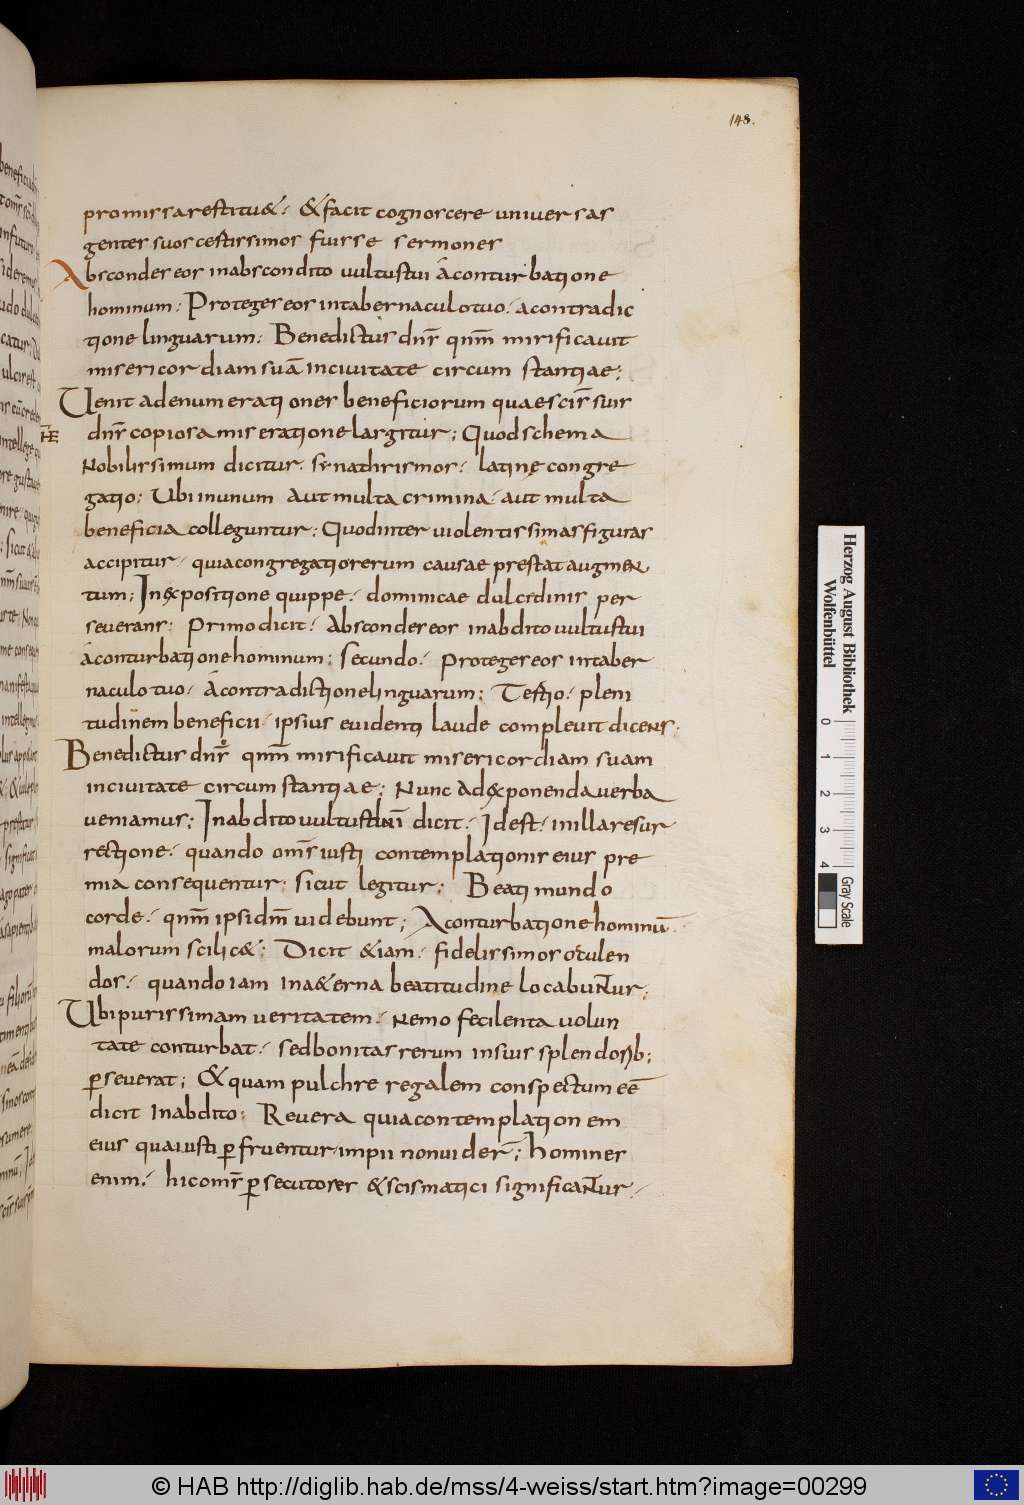 148.
promissa restitu&. & facit cognoscere universas
gentes suos cestissimos fuisse sermones
Absconderes eos in abscondito vultus tui a conturbatione
hominum. Proteges eos in tabernaculo tuo. a contradic
tione linguarum. Benedictus dns qnm mirificavit
misericordiam suā in civitate circum stantiae;
Uenit ad enumerationes beneficiorum quae scis suis
dns copiosa miseratione largitur; Quod schema
Nobilissimum dicitur. synathrismos. latine congre
gatio; Ubi in unum aut multa crimina. aut multa
beneficia colleguntur; Quod inter violentissimas figuras
accipitur. quia congregatio rerum causae prestat augmen
tum; In expositione quippe. dominicae dulcedinis per
severans; Primo dicit. Abscondes eos in abdito vultus tui
a conturbatione hominum; secundo. Proteges eos in taber
naculo tuo. a contradictione linguarum; Tertio. pleni
tudinem beneficii. ipsius evidenti laude complevit dicens;
Benedictus dns qnm mirificavit misericordiam suam
in civitate circum stantiae; Nunc ad exponenda verba
veniamus; In abdito vultus tui dicit. Id est. in illa resur
rectione. quando oms iusti contemplationis eius pre
mia consequentur; sicut legitur; Beati mundo
corde. qnm ipsi dm videbunt; A conturbatione hominū
malorum scilic&; Dicit &iam. fidelissimos
dos. quando iam in a&erna beatitudine locabuntur;
Ubi purissimam veritatem. Nemo feculenta volun
tate conturbat. sed bonitas rerum in suis splendorib;
pseverat; & quam pulchre regalem conspectum eē
dicit in abdito; Revera quia contemplationem
eius qua iusti pfruentur impii non vider; Homines
enim. hic oms psecutores & scismatici significantur.
Herzog August Bibliothek
Wolfenbüttel
0 1 2 3 4
Gray Scale
© HAB http://diglib.hab.de/mss/4-weiss/start.htm?image=00299